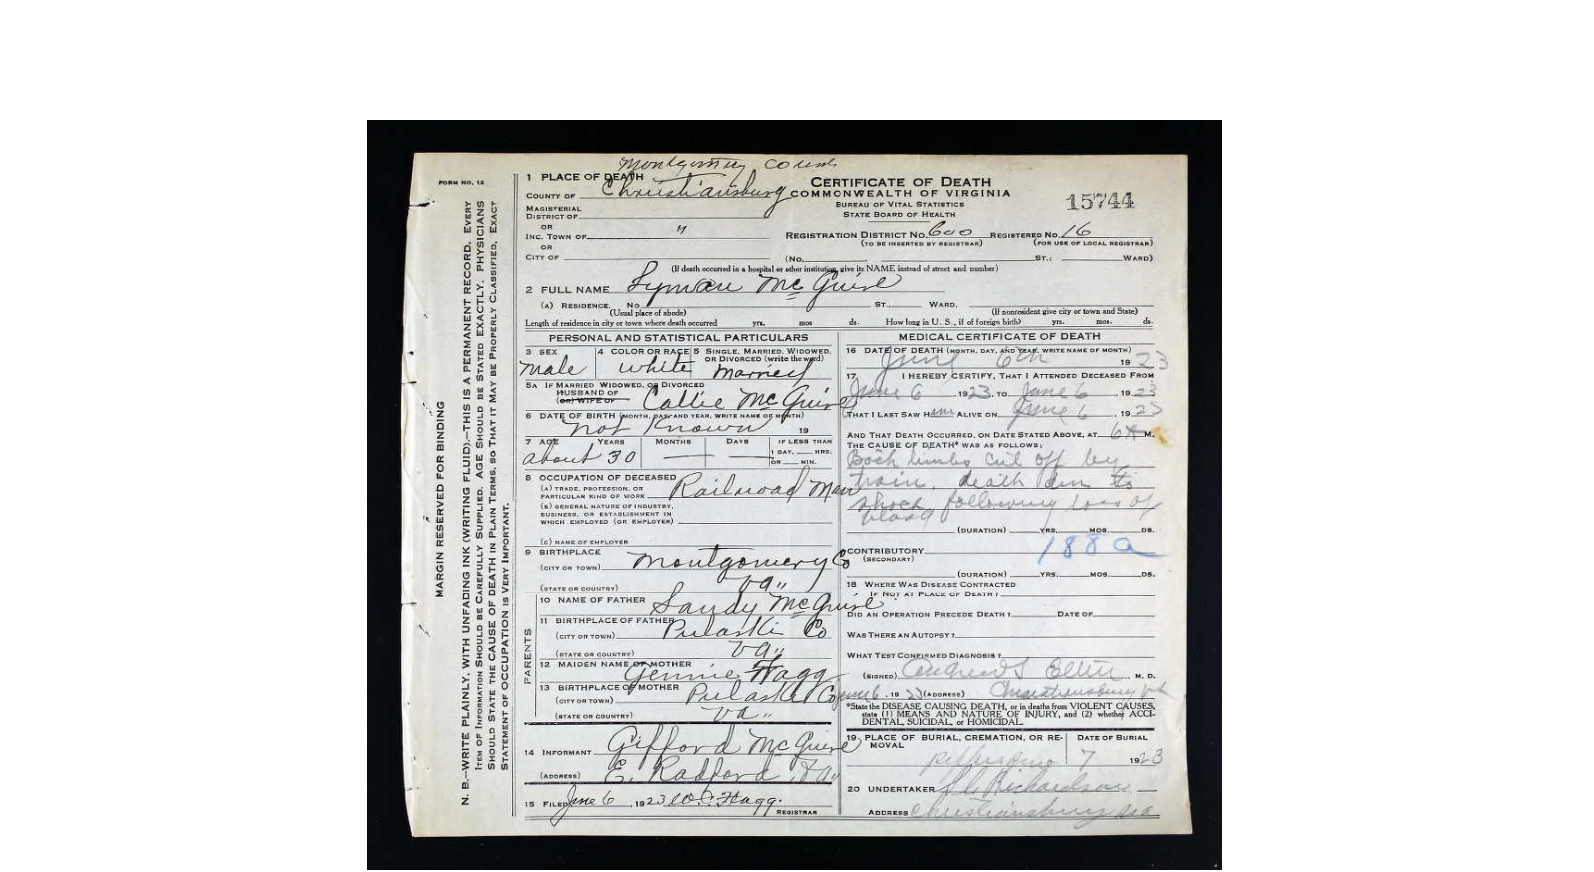 Montgomery Coun
FORM NO. 12
1 PLACE OF DEATH
COUNTY OF Christiansburg
CERTIFICATE OF DEATH
COMMONWEALTH OF VIRGINIA
BUREAU OF VITAL STATISTICS
STATE BOARD OF HEALTH
15744
MAGISTERIAL
DISTRICT OF
OR
INC. TOWN OF "
OR
CITY OF
REGISTRATION DISTRICT NO. 600 REGISTERED NO. 16
(TO BE INSERTED BY REGISTRAR) (FOR USE OF LOCAL REGISTRAR)
(NO. ST.; WARD)
(If death occurred in a hospital or other institution, give its NAME instead of street and number)
2 FULL NAME Lyman McGuire
(A) RESIDENCE. No. ST. WARD.
(Usual place of abode) (If nonresident give city or town and State)
Length of residence in city or town where death occurred yrs. mos ds. How long in U. S., if of foreign birth? yrs. mos. ds.
PERSONAL AND STATISTICAL PARTICULARS
3 SEX
male
4 COLOR OR RACE
white
5 SINGLE, MARRIED, WIDOWED,
OR DIVORCED (write the word)
married
5A IF MARRIED WIDOWED, OR DIVORCED
HUSBAND OF
(OR) WIFE OF Callie McGuire
6 DATE OF BIRTH (MONTH, DAY, AND YEAR, WRITE NAME OF MONTH)
not Known 19
7 AGE YEARS MONTHS DAYS IF LESS THAN
1 DAY, HRS.
OR MIN.
about 30
8 OCCUPATION OF DECEASED
(A) TRADE, PROFESSION, OR
PARTICULAR KIND OF WORK Railroad Man
(B) GENERAL NATURE OF INDUSTRY,
BUSINESS, OR ESTABLISHMENT IN
WHICH EMPLOYED (OR EMPLOYER)
(C) NAME OF EMPLOYER
9 BIRTHPLACE
(CITY OR TOWN) Montgomery Co
(STATE OR COUNTRY) va"
PARENTS
10 NAME OF FATHER Sandy McGuire
11 BIRTHPLACE OF FATHER
(CITY OR TOWN) Pulaski Co
(STATE OR COUNTRY) va"
12 MAIDEN NAME OF MOTHER
Gennie Flagg
13 BIRTHPLACE OF MOTHER
(CITY OR TOWN) Pulaski Co
(STATE OR COUNTRY) va"
14 INFORMANT Gifford McGuire
(ADDRESS) E. Radford, Va"
15 FILED June 6, 1923 W.C. Flagg.
REGISTRAR
MEDICAL CERTIFICATE OF DEATH
16 DATE OF DEATH (MONTH, DAY, AND YEAR, WRITE NAME OF MONTH)
June 6th 1923
17 I HEREBY CERTIFY, THAT I ATTENDED DECEASED FROM
June 6, 1923, TO June 6, 1923
THAT I LAST SAW Him ALIVE ON June 6, 1923
AND THAT DEATH OCCURRED, ON DATE STATED ABOVE, AT 6 A M.
THE CAUSE OF DEATH* WAS AS FOLLOWS:
Both limbs cut off by
train, death due to
shock following loss of
blood
(DURATION) YRS. MOS. DS.
188a
CONTRIBUTORY
(SECONDARY)
(DURATION) YRS. MOS. DS.
18 WHERE WAS DISEASE CONTRACTED
IF NOT AT PLACE OF DEATH?
DID AN OPERATION PRECEDE DEATH? DATE OF
WAS THERE AN AUTOPSY?
WHAT TEST CONFIRMED DIAGNOSIS?
(SIGNED) , M. D.
June 6, 1923 (ADDRESS) Christiansburg Va
*State the DISEASE CAUSING DEATH, or in deaths from VIOLENT CAUSES,
state (1) MEANS AND NATURE OF INJURY, and (2) whether ACCI-
DENTAL, SUICIDAL, or HOMICIDAL.
19 PLACE OF BURIAL, CREMATION, OR RE-
MOVAL
DATE OF BURIAL
7 1923
20 UNDERTAKER Richardson
ADDRESS Christiansburg
MARGIN RESERVED FOR BINDING
N. B.—WRITE PLAINLY, WITH UNFADING INK (WRITING FLUID).—THIS IS A PERMANENT RECORD. EVERY
ITEM OF INFORMATION SHOULD BE CAREFULLY SUPPLIED. AGE SHOULD BE STATED EXACTLY. PHYSICIANS
SHOULD STATE THE CAUSE OF DEATH IN PLAIN TERMS, SO THAT IT MAY BE PROPERLY CLASSIFIED. EXACT
STATEMENT OF OCCUPATION IS VERY IMPORTANT.